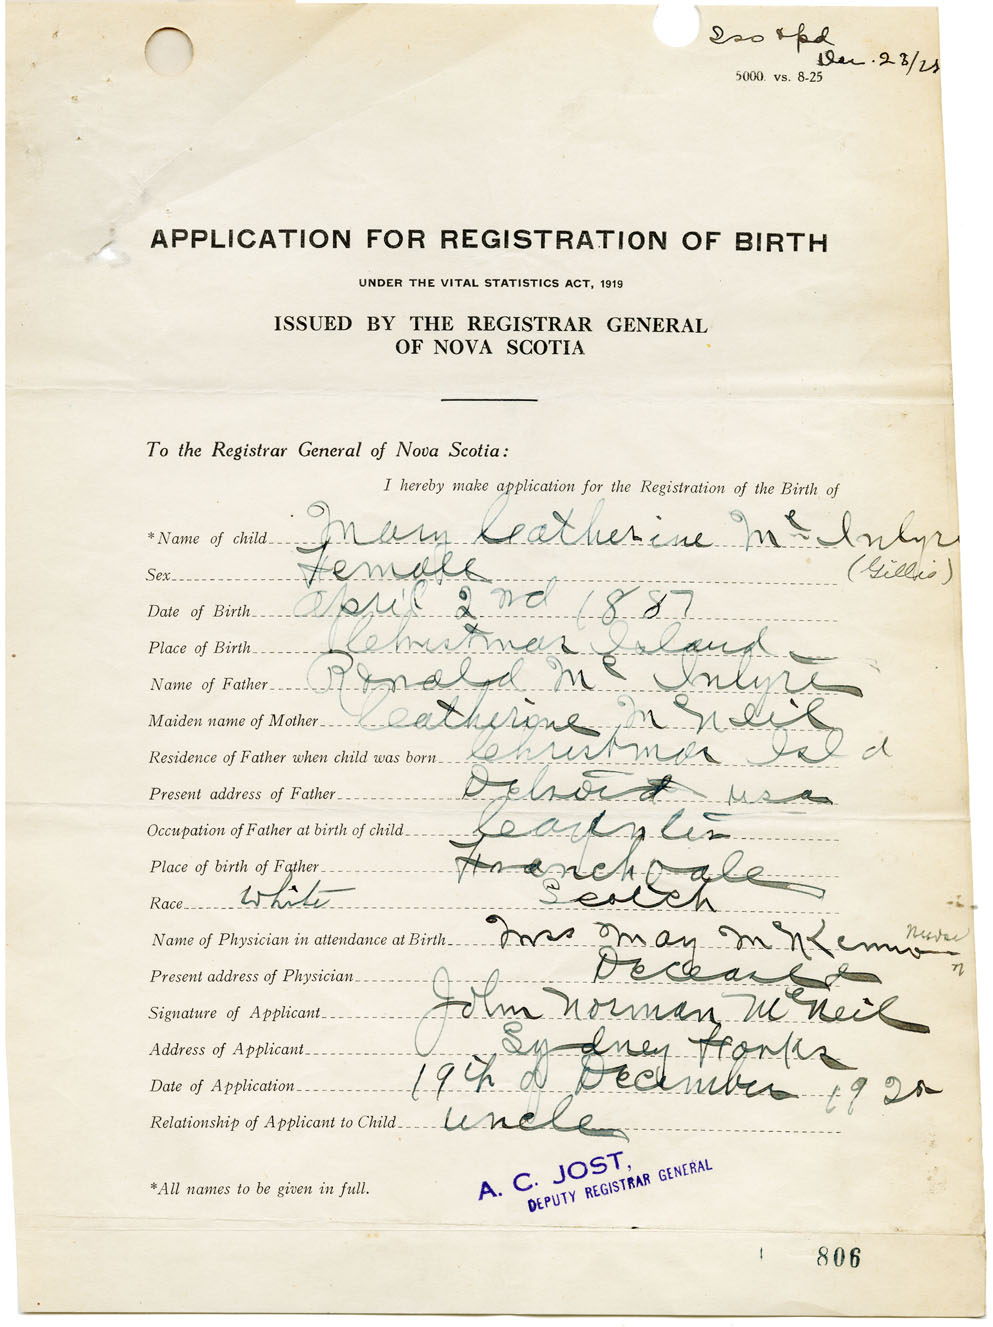 Dec. 23/25
5000. vs. 8-25
APPLICATION FOR REGISTRATION OF BIRTH
UNDER THE VITAL STATISTICS ACT, 1919
ISSUED BY THE REGISTRAR GENERAL
OF NOVA SCOTIA
To the Registrar General of Nova Scotia:
I hereby make application for the Registration of the Birth of
*Name of child Mary Catherine Mc Intyre
Sex Female (Gillis)
Date of Birth April 2nd 1887
Place of Birth Christmas Island
Name of Father Ronald Mc Intyre
Maiden name of Mother Catherine McNeil
Residence of Father when child was born Christmas Isld
Present address of Father Detroit usa
Occupation of Father at birth of child Carpenter
Place of birth of Father French Vale
Race White Scotch
Name of Physician in attendance at Birth Mrs May McKinnon
Present address of Physician Deceased
Signature of Applicant John Norman McNeil
Address of Applicant Sydney Forks
Date of Application 19th of December 1925
Relationship of Applicant to Child uncle
A. C. JOST,
DEPUTY REGISTRAR GENERAL
*All names to be given in full.
806